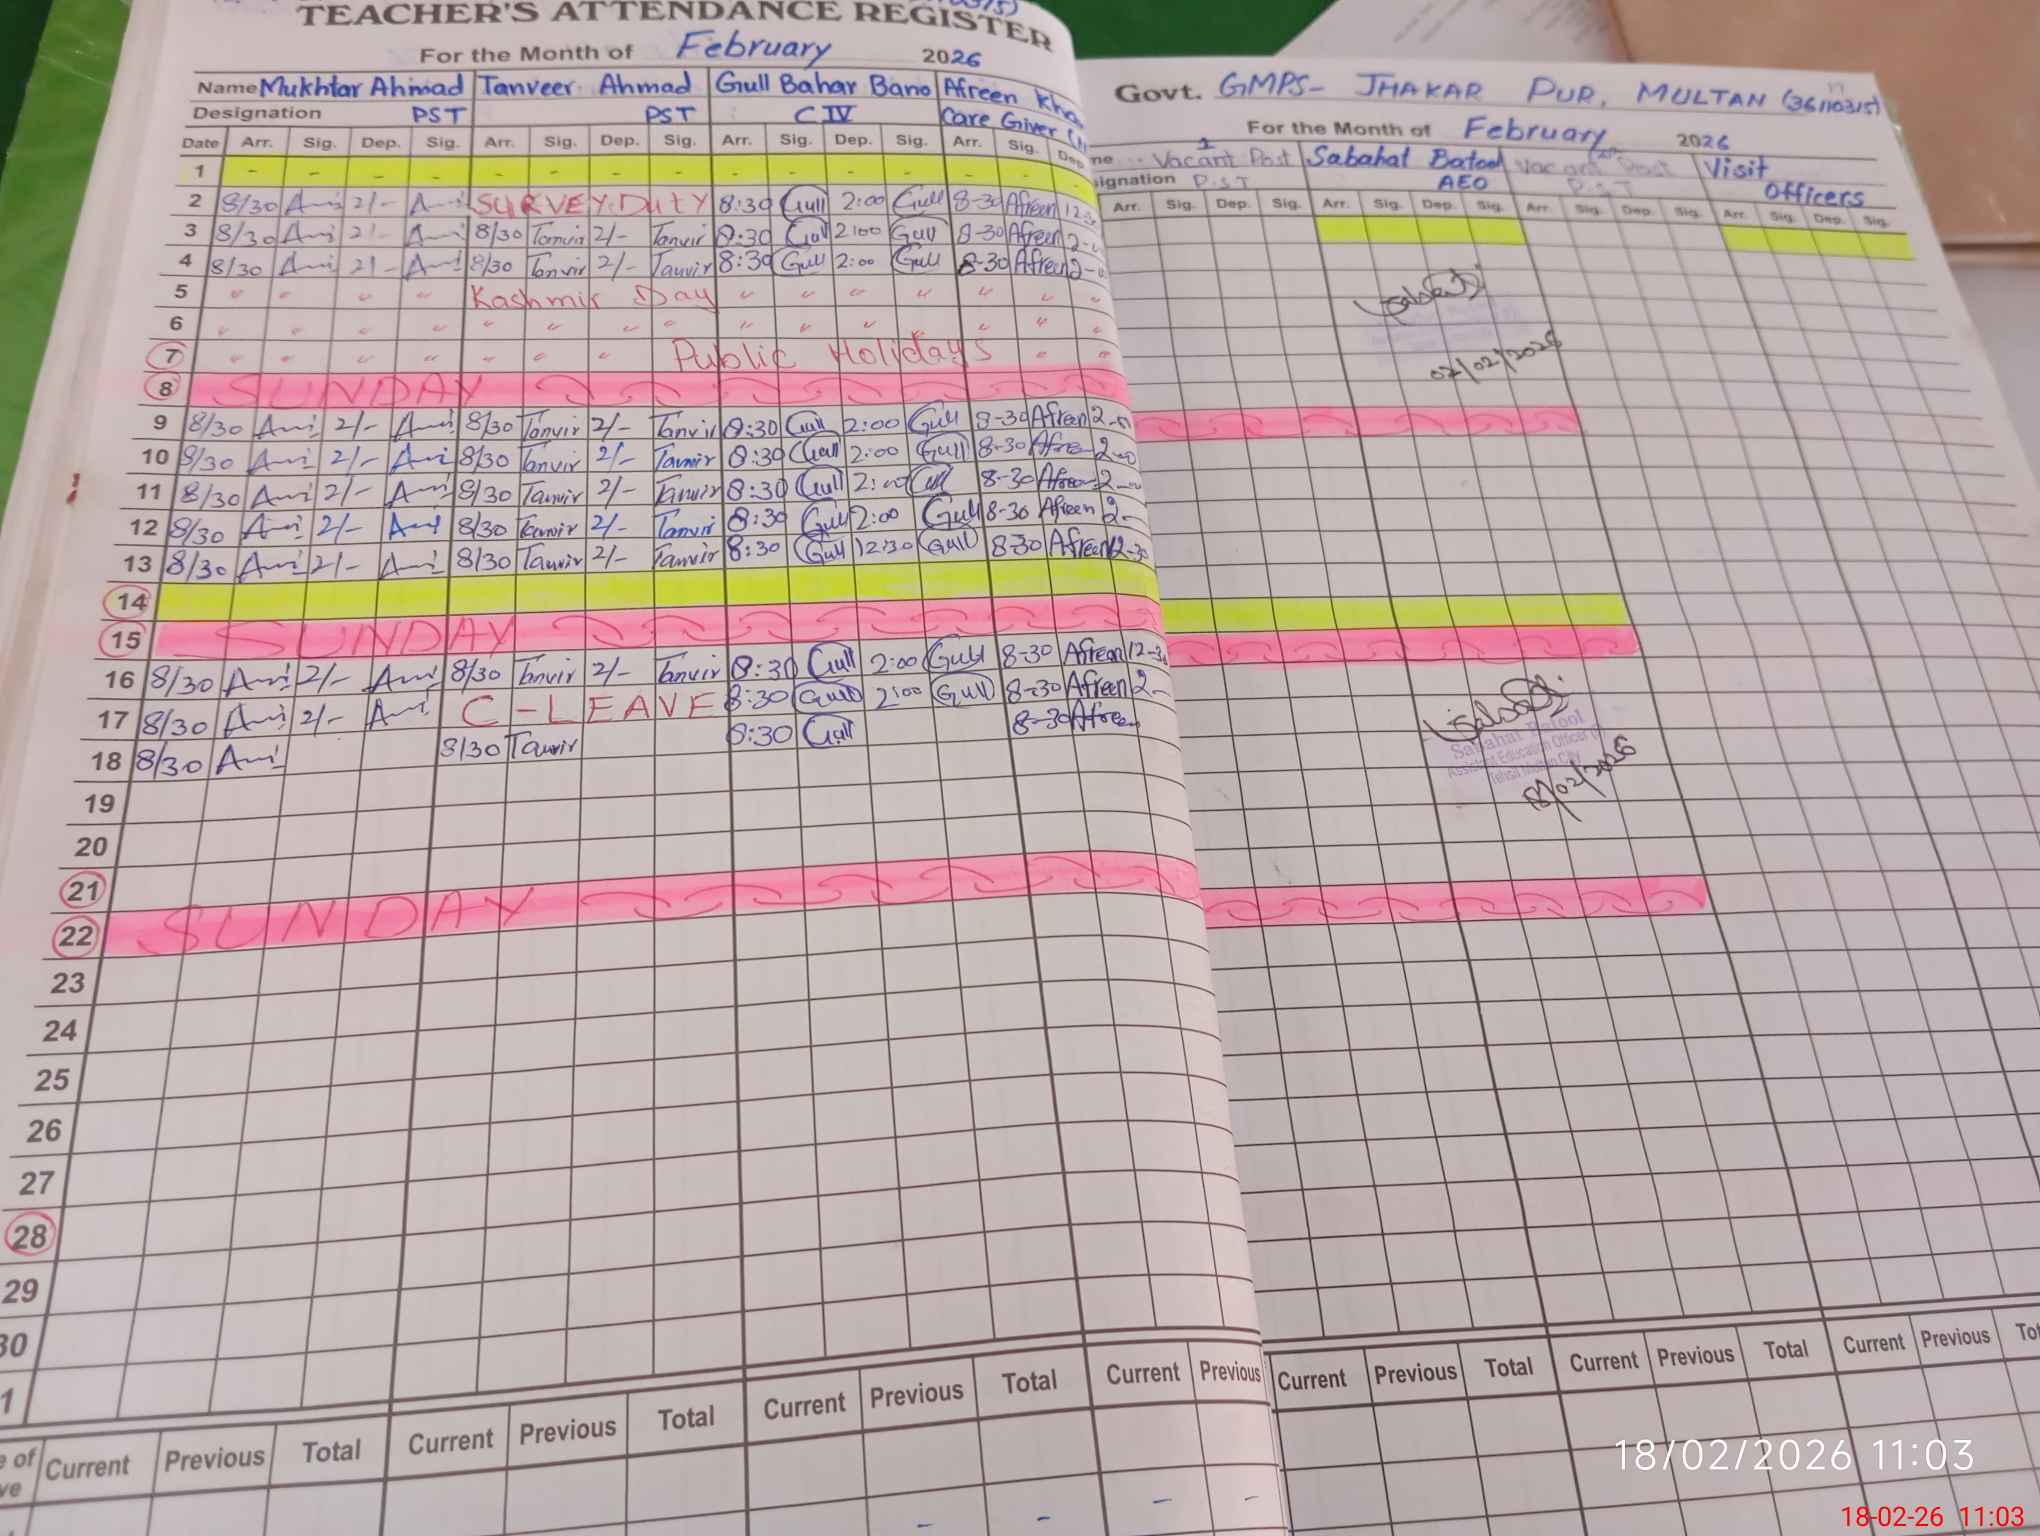 TEACHER'S ATTENDANCE REGISTER
For the Month of February 2026
Name Mukhtar Ahmad Tanveer Ahmad Gull Bahar Bano Afreen Kha
Designation PST PST C IV Care Giver
Date Arr. Sig. Dep. Sig. Arr. Sig. Dep. Sig. Arr. Sig. Dep. Sig. Arr. Sig. Dep
1 - - - - - - - - - - - - - - -
2 8/30 2/- SURVEY DUTY 8:30 Gull 2:00 Gull 8-30 Afreen
3 8/30 2/- 8/30 Tanvir 2/- Tanvir 8:30 Gull 2:00 Gull 8-30 Afreen 2-
4 8/30 2/- 8/30 Tanvir 2/- Tanvir 8:30 Gull 2:00 Gull 8-30 Afreen 2-
5 " " " " Kashmir Day " " " " " " "
6 " " " " " " " " " " " " " " "
7 " " " " " " " Public Holidays " "
8 SUNDAY
9 8/30 2/- 8/30 Tanvir 2/- Tanvir 8:30 Gull 2:00 Gull 8-30 Afreen 2-
10 8/30 2/- 8/30 Tanvir 2/- Tanvir 8:30 Gull 2:00 Gull 8-30 Afreen 2-
11 8/30 2/- 8/30 Tanvir 2/- Tanvir 8:30 Gull 2: Gull 8-30 Afreen 2-
12 8/30 2/- 8/30 Tanvir 2/- Tanvir 8:30 Gull 2:00 Gull 8-30 Afreen 2-
13 8/30 2/- 8/30 Tanvir 2/- Tanvir 8:30 Gull 12:30 Gull 8-30 Afreen 12-30
14
15 SUNDAY
16 8/30 2/- 8/30 Tanvir 2/- Tanvir 8:30 Gull 2:00 Gull 8-30 Afreen 12-30
17 8/30 2/- C-LEAVE 8:30 Gull 2:00 Gull 8-30 Afreen 2-
18 8/30 8/30 Tanvir 8:30 Gull 8-30 Afreen
19
20
21
22 SUNDAY
23
24
25
26
27
28
29
30
1
e of Current Previous Total Current Previous Total Current Previous Total Current Previous
ve
Govt. GMPS- JHAKAR PUR, MULTAN (36110315)
For the Month of February 2026
me Vacant Post Sabahat Batool Vacant Post Visit
signation P.S.T AEO P.S.T Officers
Arr. Sig. Dep. Sig. Arr. Sig. Dep. Sig. Arr. Sig. Dep. Sig. Arr. Sig. Dep. Sig.
07/02/2026
Sabahat Batool
Assistant Education Officer
Tehsil Multan City
18/02/2026
Current Previous Total Current Previous Total Current Previous Tot
18/02/2026 11:03
18-02-26 11:03